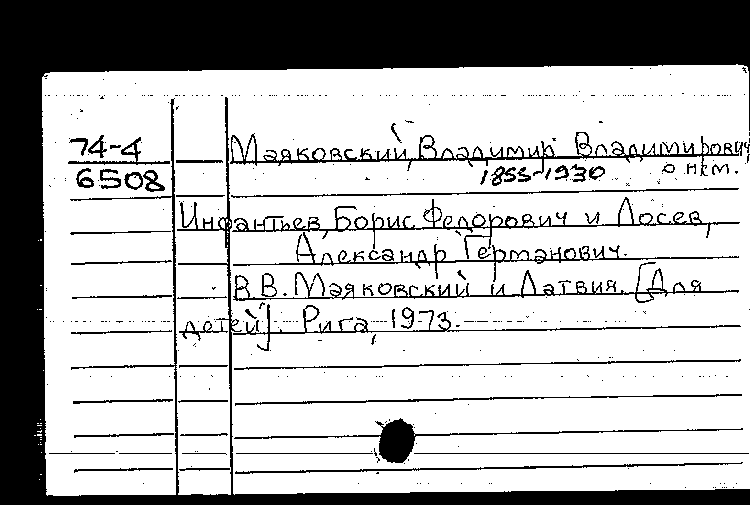 74-4 Маяковский, Владимир Владимирович
6508 1855-1930 о нем.
Инфантьев, Борис Федорович и Лосев,
Александр Германович.
В.В. Маяковский и Латвия. [Для
детей]. Рига, 1973.